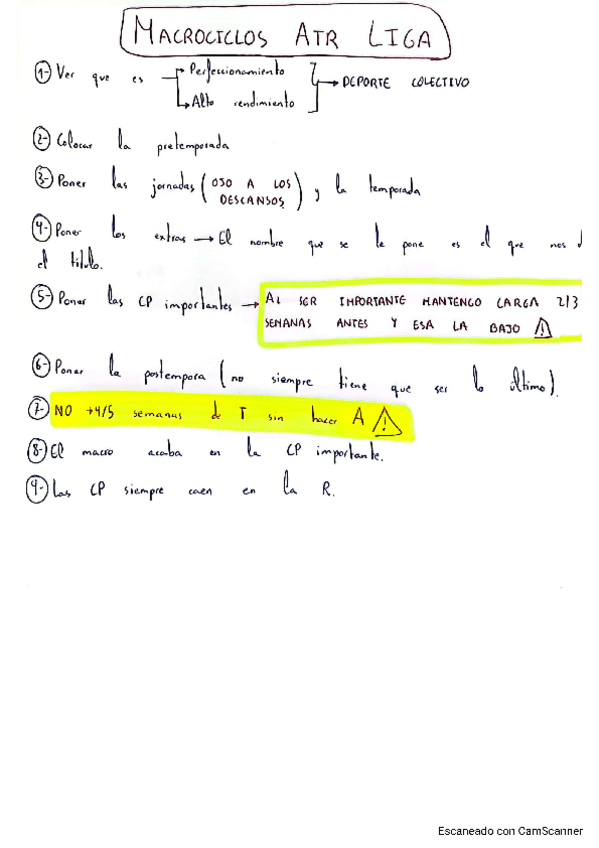 MACROCICLOS ATR LIGA
1- Ver que es → Perfeccionamiento
→ Alto rendimiento → DEPORTE COLECTIVO
2- Colocar la pretemporada
3- Poner las jornadas (OJO A LOS DESCANSOS) y la temporada
4- Poner los extras → El nombre que se le pone es el que nos
el titulo.
5- Poner las CP importantes → AL SER IMPORTANTE MANTENGO CARGA 2/3
SEMANAS ANTES Y ESA LA BAJO ⚠
6- Poner la postempora (no siempre tiene que ser lo último).
7- NO +4/5 semanas de T sin hacer A ⚠
8- El macro acaba en la CP importante.
9- Las CP siempre caen en la R.
Escaneado con CamScanner